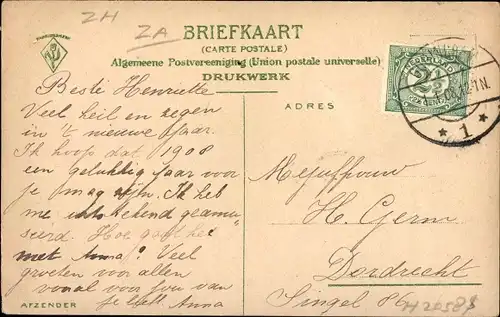 ZH
ZA
BRIEFKAART
(CARTE POSTALE)
Algemeene Postvereeniging (Union postale universelle)
DRUKWERK
ADRES
NEDERLAND
2½
CENT
★ 1 ★
Beste Henriette
Veel heil en zegen
in 't nieuwe jaar.
Ik hoop dat 1908
een gelukkig jaar voor
je mag zijn. Ik heb
me uitstekend geamu
seerd. Hoe gaat het
met Anna? Veel
groeten voor allen
vooral voor jou van
je Anna
Mejuffrouw
H. Germ
Dordrecht
Singel 86
AFZENDER
H20587